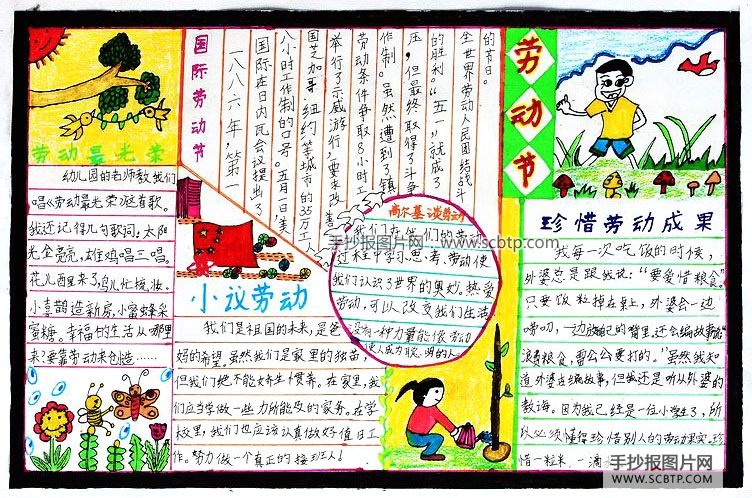 劳动最光荣
幼儿园的老师教我们
唱《劳动最光荣》这首歌。
我还记得几句歌词：太阳
光金亮亮，雄鸡唱三唱。
花儿醒来了，鸟儿忙梳妆。
小喜鹊造新房，小蜜蜂采
蜜糖。幸福的生活从哪里
来？要靠劳动来创造……
国际劳动节
一八八六年，第一
国际在日内瓦会议提出了
八小时工作制的口号。五月一日，美
国芝加哥、纽约等城市的35万工人
举行了示威游行，要求改善
劳动条件争取8小时工
作制。虽然遭到了镇
压，但最终取得了斗争
的胜利。“五一”就成了
全世界劳动人民团结战斗
的节日。
高尔基谈劳动
我们在我们的劳动
过程中学习思考，劳动使
我们认识了世界的奥妙，热爱
劳动，可以改变我们生活
没有一种力量能像劳动
使人成为聪明的人
小议劳动
我们是祖国的未来，是爸
妈的希望。虽然我们是家里的独苗，
但我们绝不能娇生惯养。在家里，我
们应当学做一些力所能及的家务。在学
校里，我们也应该认真做好值日工
作。努力做一个真正的接班人！
劳动节
珍惜劳动成果
我每一次吃饭的时候，
外婆总是跟我说：“要爱惜粮食”。
只要饭粒掉在桌上，外婆会一边
唠叨，一边放自己的嘴里，还会编故事说
“浪费粮食，雷公公要打的。”虽然我知
道外婆在编故事，但我还是听从外婆的
教诲。因为我已经是一位小学生了，所
以必须懂得珍惜别人的劳动果实。珍
惜一粒米，一滴
手抄报图片网 www.scbtp.com
手抄报图片网
WWW.SCBTP.COM